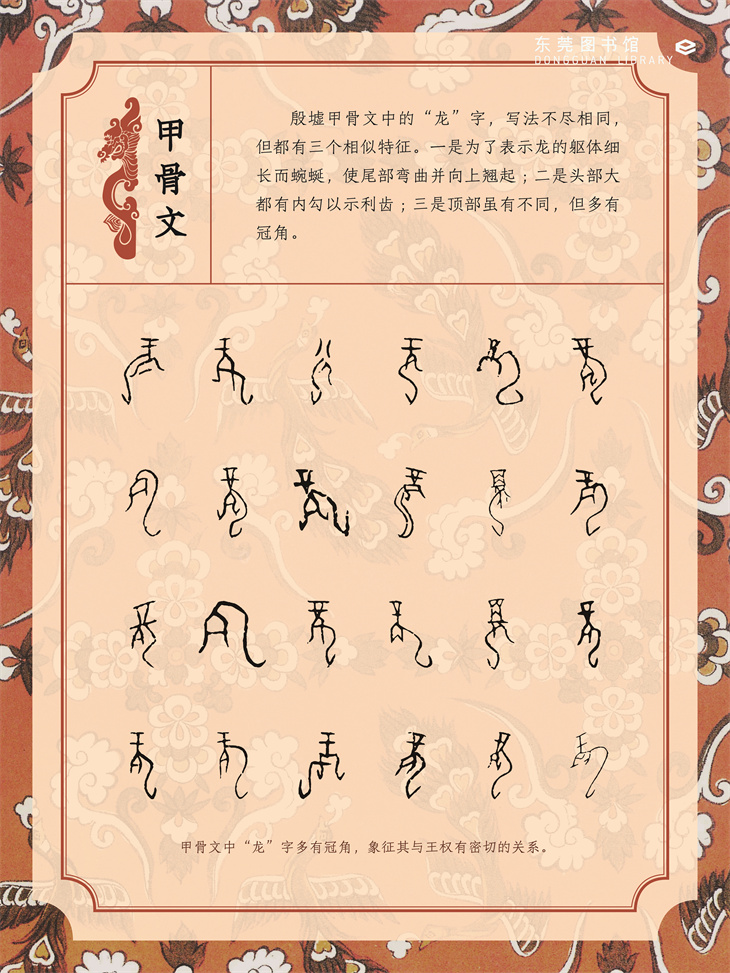 东莞图书馆
DONGGUAN LIBRARY
甲骨文
殷墟甲骨文中的“龙”字，写法不尽相同，
但都有三个相似特征。一是为了表示龙的躯体细
长而蜿蜒，使尾部弯曲并向上翘起；二是头部大
都有内勾以示利齿；三是顶部虽有不同，但多有
冠角。
甲骨文中“龙”字多有冠角，象征其与王权有密切的关系。